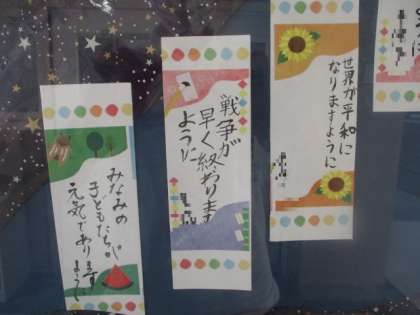 世界が平和に
なりますように
戦争が
早く終わります
ように
みなみの
子どもたちが
元気であります
ように